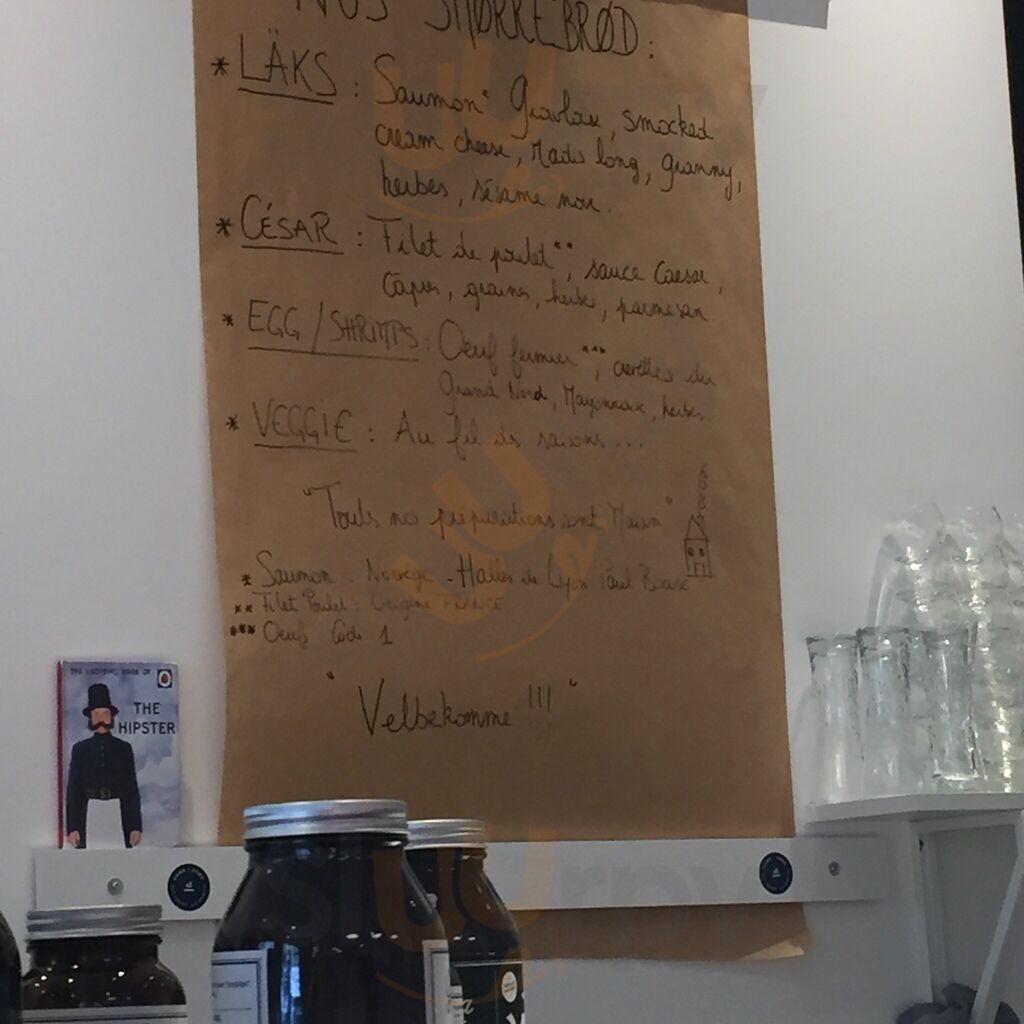 NOS SMØRREBRØD :
* LÄKS : Saumon* Gravlax, smocked
cream cheese, Radis long, granny,
herbes, sésame noir.
* CÉSAR : Filet de poulet**, sauce Caesar,
Câpres, graines, herbes, parmesan
* EGG / SHRIMPS : Oeuf fermier***, crevettes du
Grand Nord, Mayonnaise, herbes
* VEGGIE : Au fil des saisons...
"Touts nos préparations sont Maison"
* Saumon : Norvège - Halles de Lyon Paul Bocuse
** Filet Poulet : Origine FRANCE
*** Oeufs Code 1
"Velbekomme !!!"
THE LADYBIRD BOOK OF
THE
HIPSTER